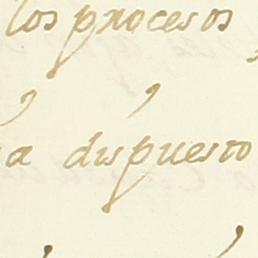 los procesos
a dispuesto